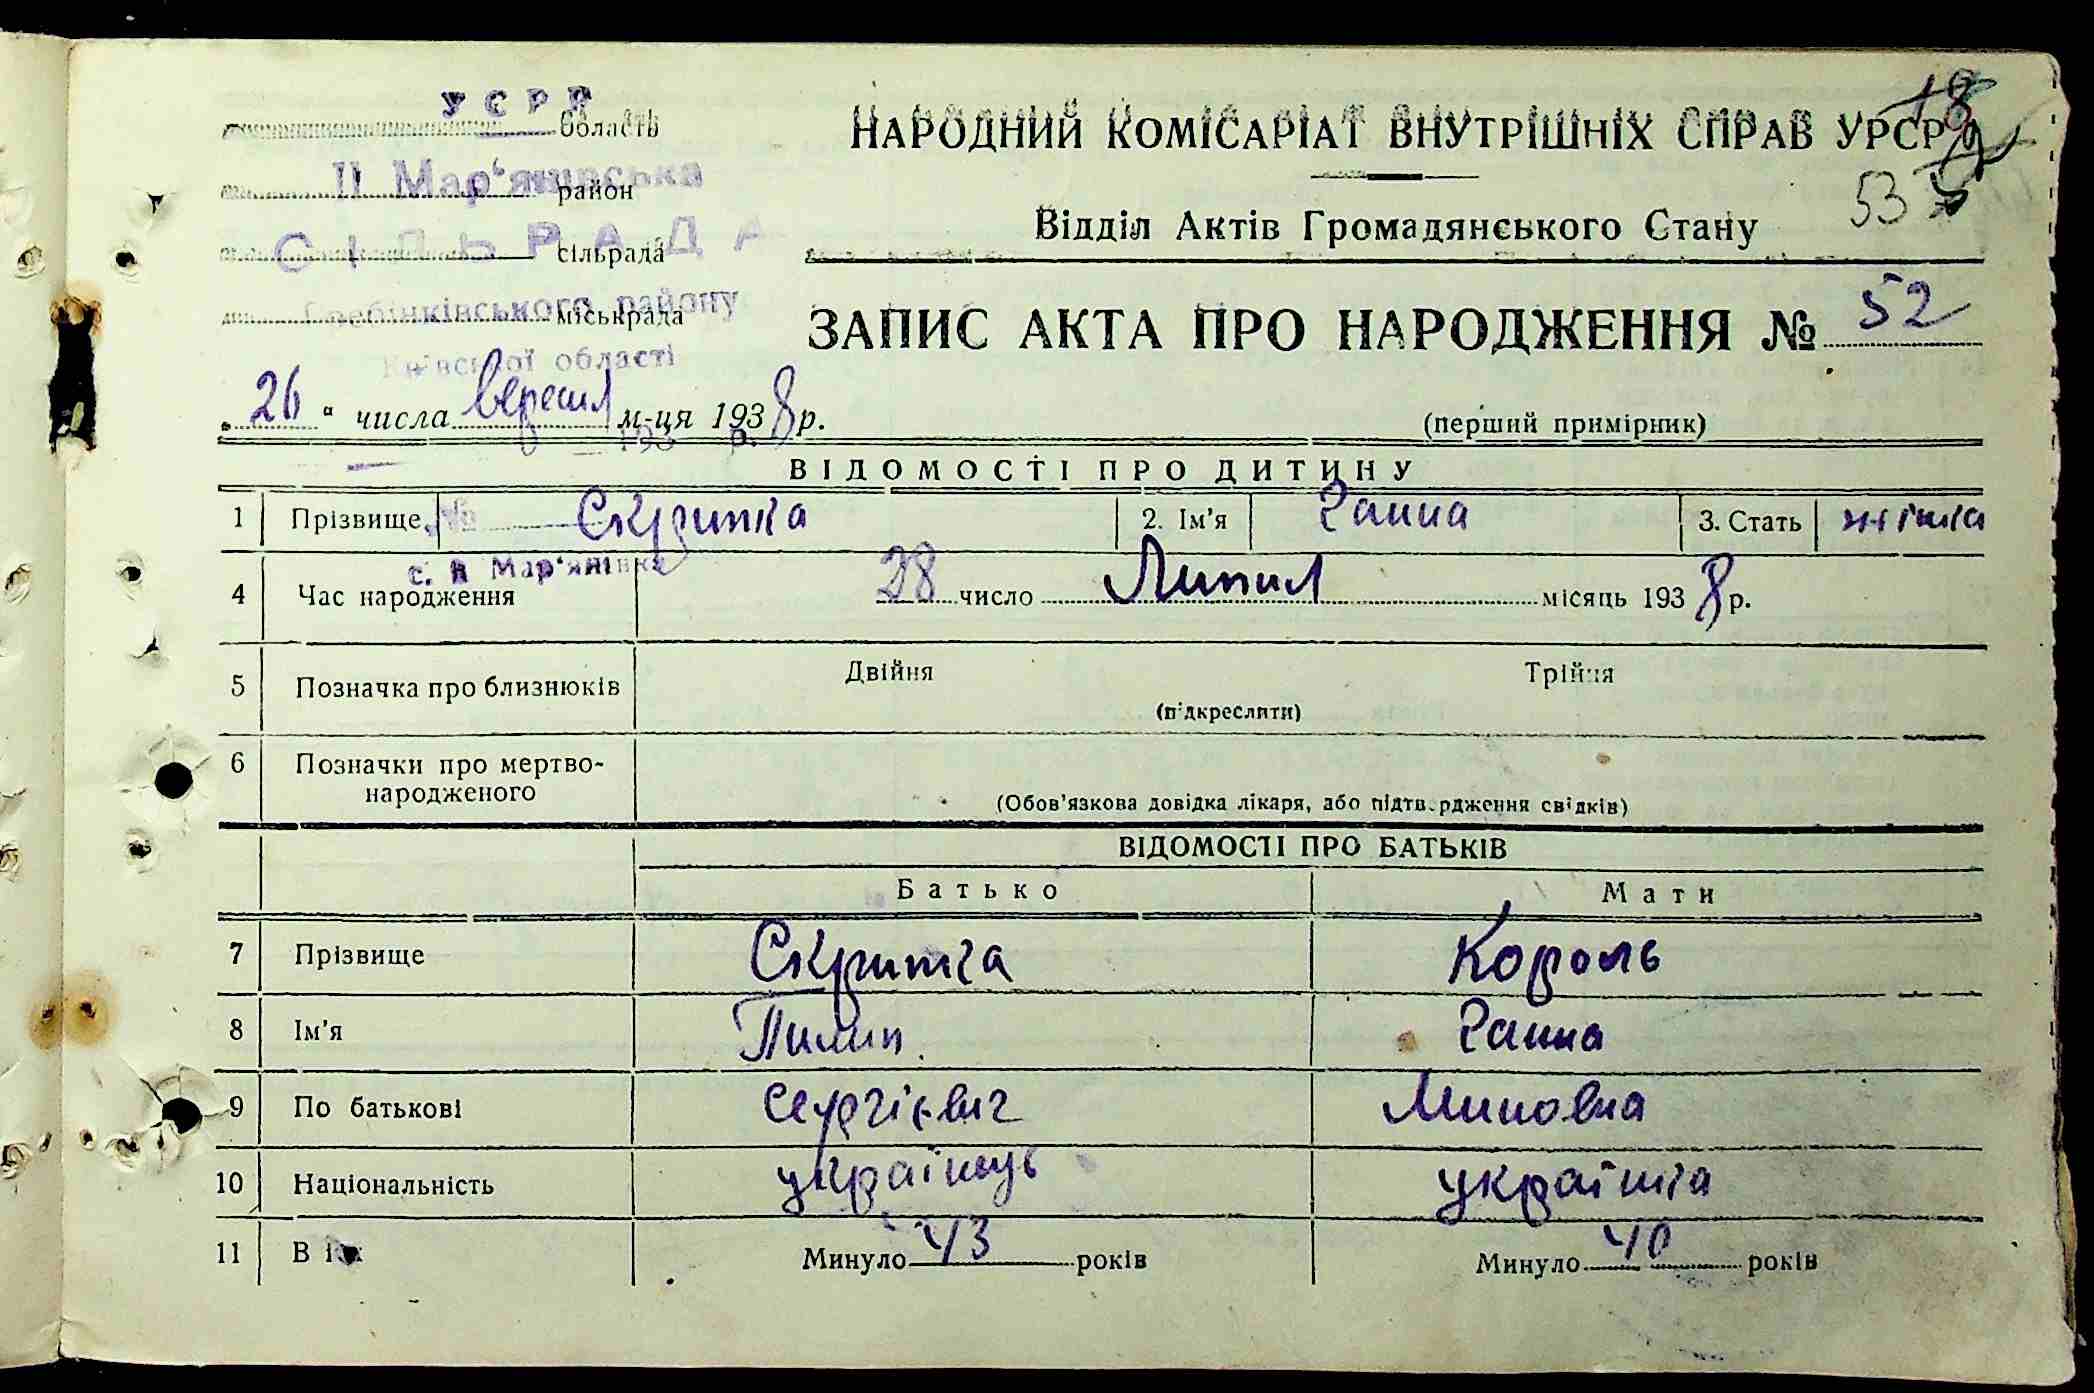 УСРР
область
ІІ Мар'янівська
район
СІЛЬРАДА
сільрада
Гребінківського району
міськрада
Київської області
НАРОДНИЙ КОМІСАРІАТ ВНУТРІШНІХ СПРАВ УРСР
18
53
Відділ Актів Громадянського Стану
ЗАПИС АКТА ПРО НАРОДЖЕННЯ № 52
„26“ числа вересня м-ця 1938 р.
193 р.
(перший примірник)
ВІДОМОСТІ ПРО ДИТИНУ
1 Прізвище Скрипка 2. Ім'я Ганна 3. Стать жінка
№
с. ІІ Мар'янівка
4 Час народження 28 число Липня місяць 1938 р.
5 Позначка про близнюків Двійня Трійня
(підкреслити)
6 Позначки про мертво-
народженого
(Обов'язкова довідка лікаря, або підтвердження свідків)
ВІДОМОСТІ ПРО БАТЬКІВ
Батько Мати
7 Прізвище Скрипка Король
8 Ім'я Пилип Ганна
9 По батькові Сергієвич Миновна
10 Національність українець українка
11 Вік Минуло 43 років Минуло 40 років